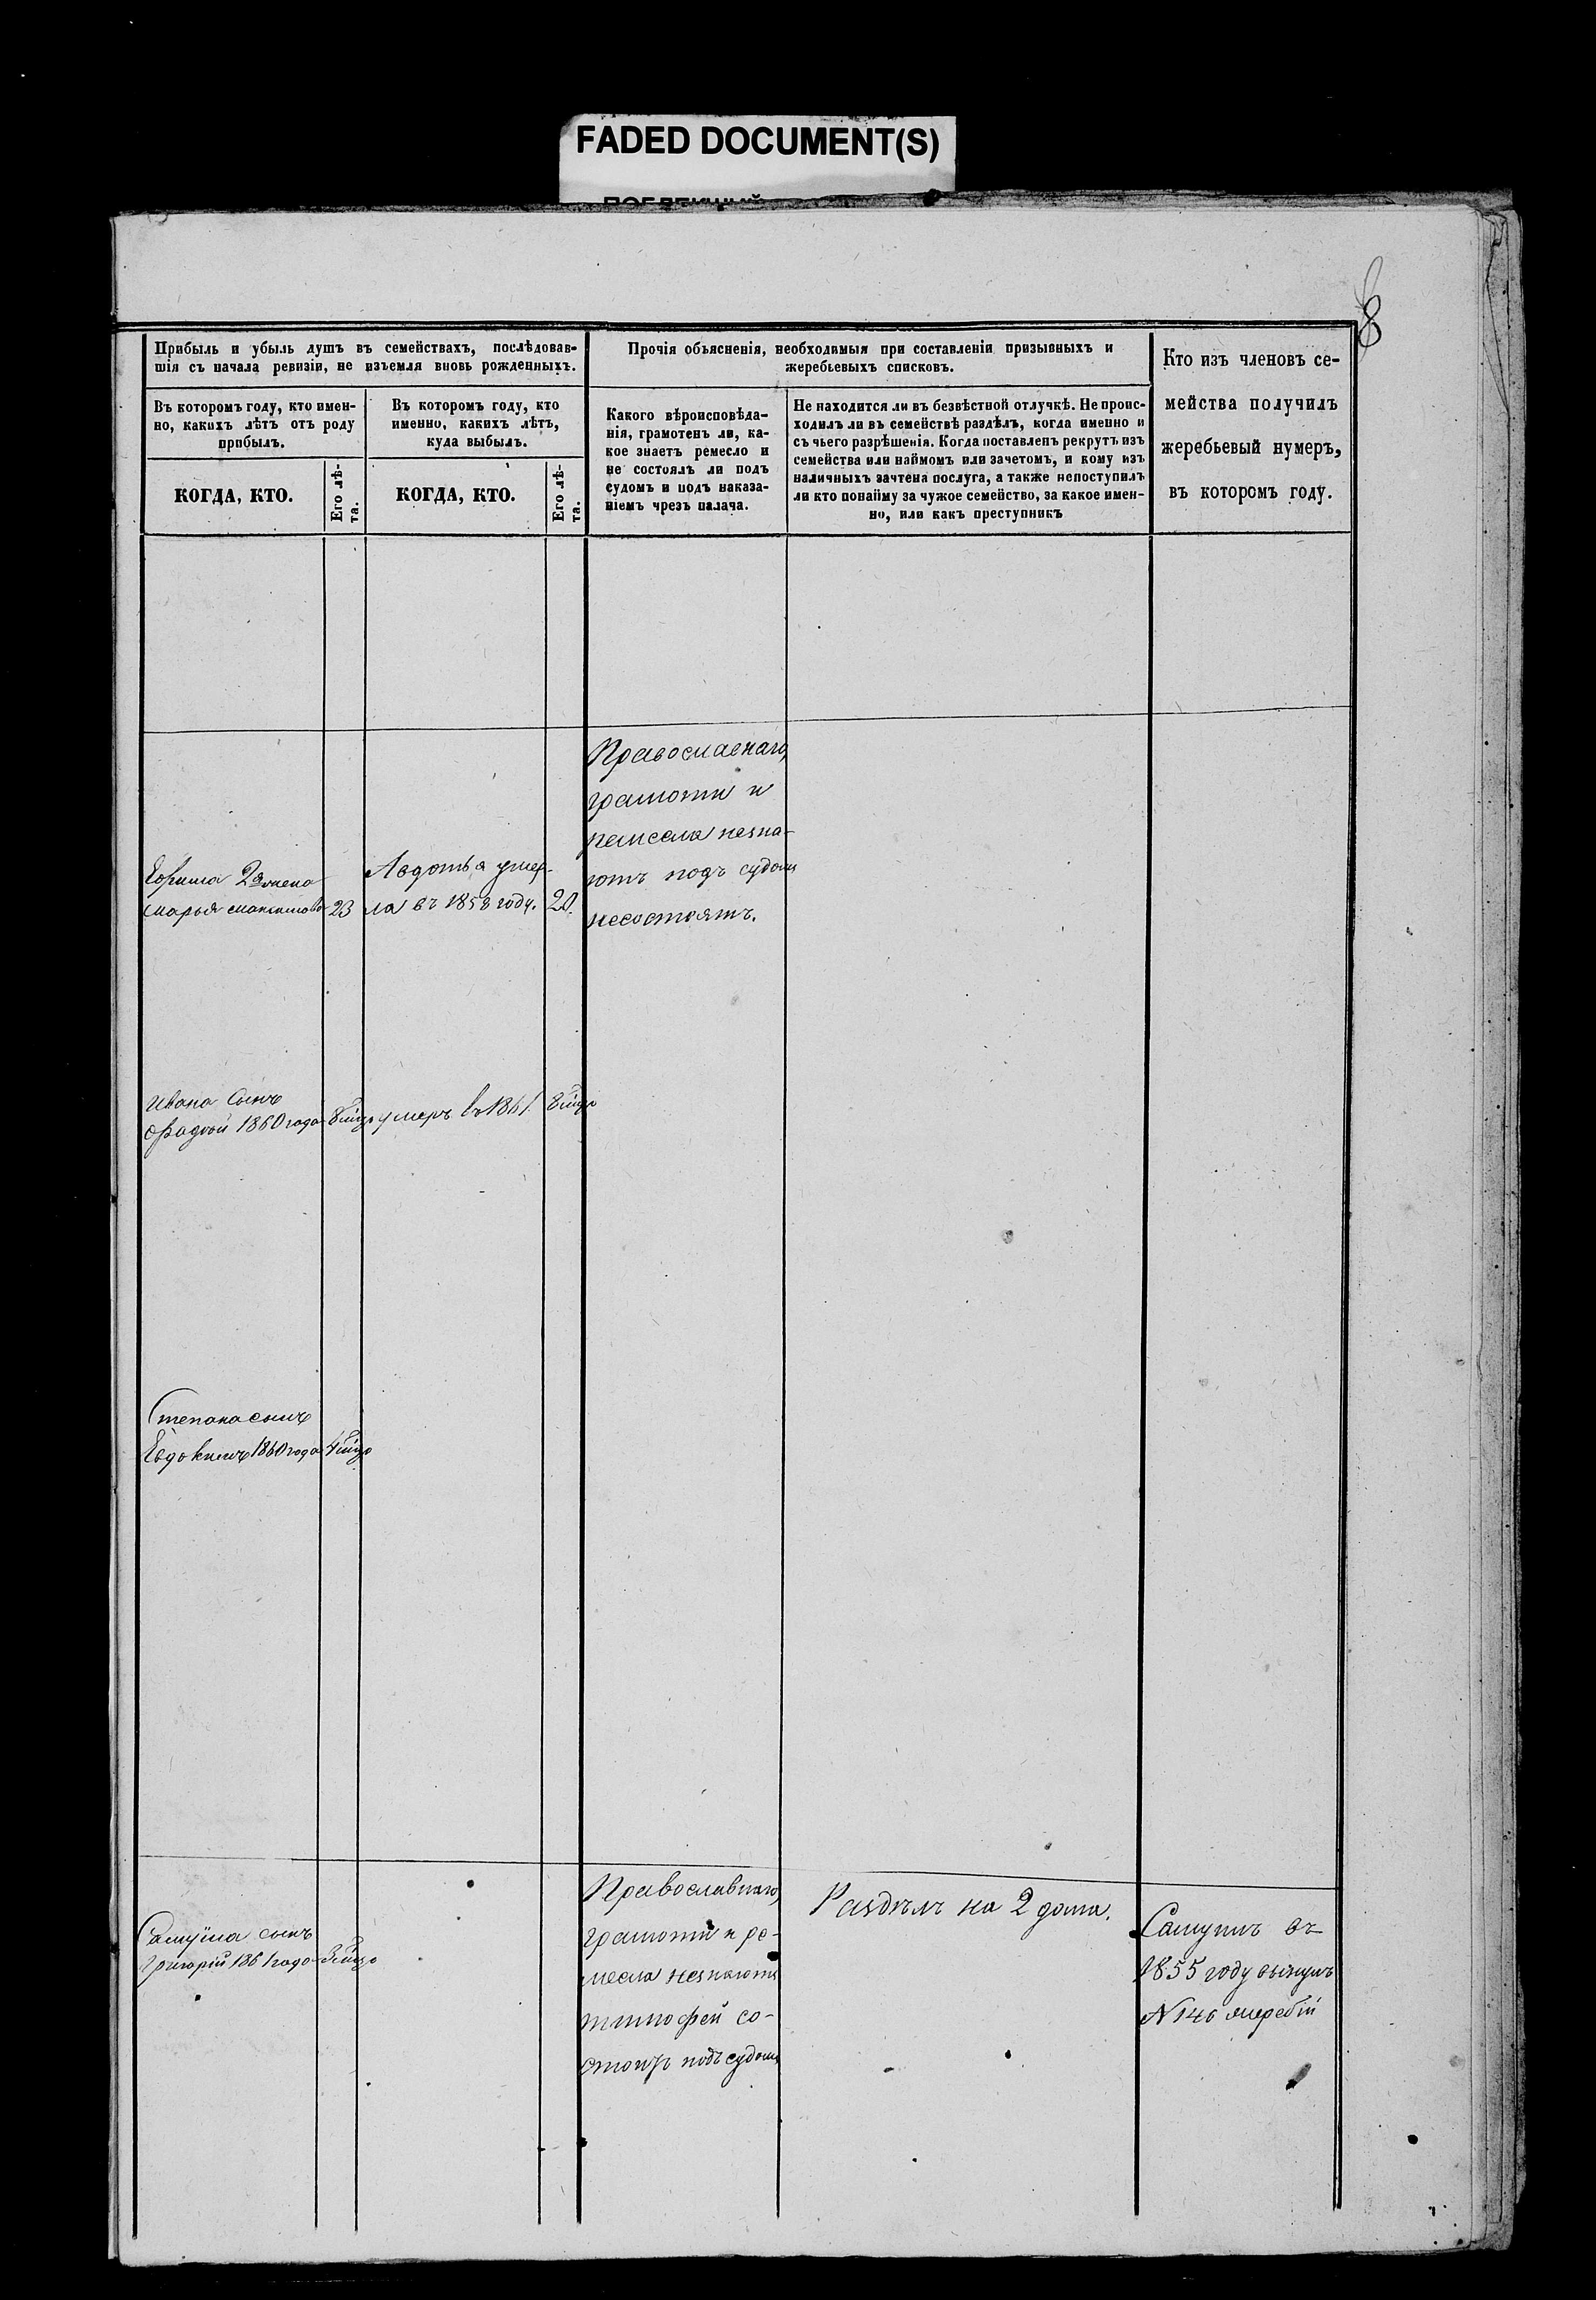 FADED DOCUMENT(S)
8
Прибыль и убыль душъ въ семействахъ, послѣдовав-
шія съ начала ревизіи, не изъемля вновь рожденныхъ.
Въ которомъ году, кто имен-
но, какихъ лѣтъ отъ роду
прибылъ.
КОГДА, КТО.
Его лѣ-
та.
Въ которомъ году, кто
именно, какихъ лѣтъ,
куда выбылъ.
КОГДА, КТО.
Его лѣ-
та.
Прочія объясненія, необходимыя при составленіи призывныхъ и
жеребьевыхъ списковъ.
Какого вѣроисповѣда-
нія, грамотенъ ли, ка-
кое знаетъ ремесло и
не состоялъ ли подъ
судомъ и подъ наказа-
ніемъ чрезъ палача.
Не находится ли въ безвѣстной отлучкѣ. Не проис-
ходилъ ли въ семействѣ раздѣлъ, когда именно и
съ чьего разрѣшенія. Когда поставленъ рекрутъ изъ
семейства или наймомъ или зачетомъ, и кому изъ
наличныхъ зачтена послуга, а также непоступилъ
ли кто понайму за чужое семейство, за какое имен-
но, или какъ преступникъ
Кто изъ членовъ се-
мейства получилъ
жеребьевый нумеръ,
въ которомъ году.
Ефима 2я жена
марья максимова
23
Авдотья умер-
ла въ 1858 году.
20.
Православнаго,
грамоти и
ремесла незна-
ютъ подъ судомъ
несостоятъ.
Ивана Сынъ
Фадей 1860 года
умеръ въ 1861.
Степана сынъ
Евдокимъ 1860 года
Самуила сынъ
григорій 1861 года
Православнаго,
грамоти и ре-
месла незнаютъ
тимофей со-
стоитъ подъ судомъ
Раздѣлъ на 2 дома.
Самуилъ въ
1855 году вынулъ
N 146 жребій